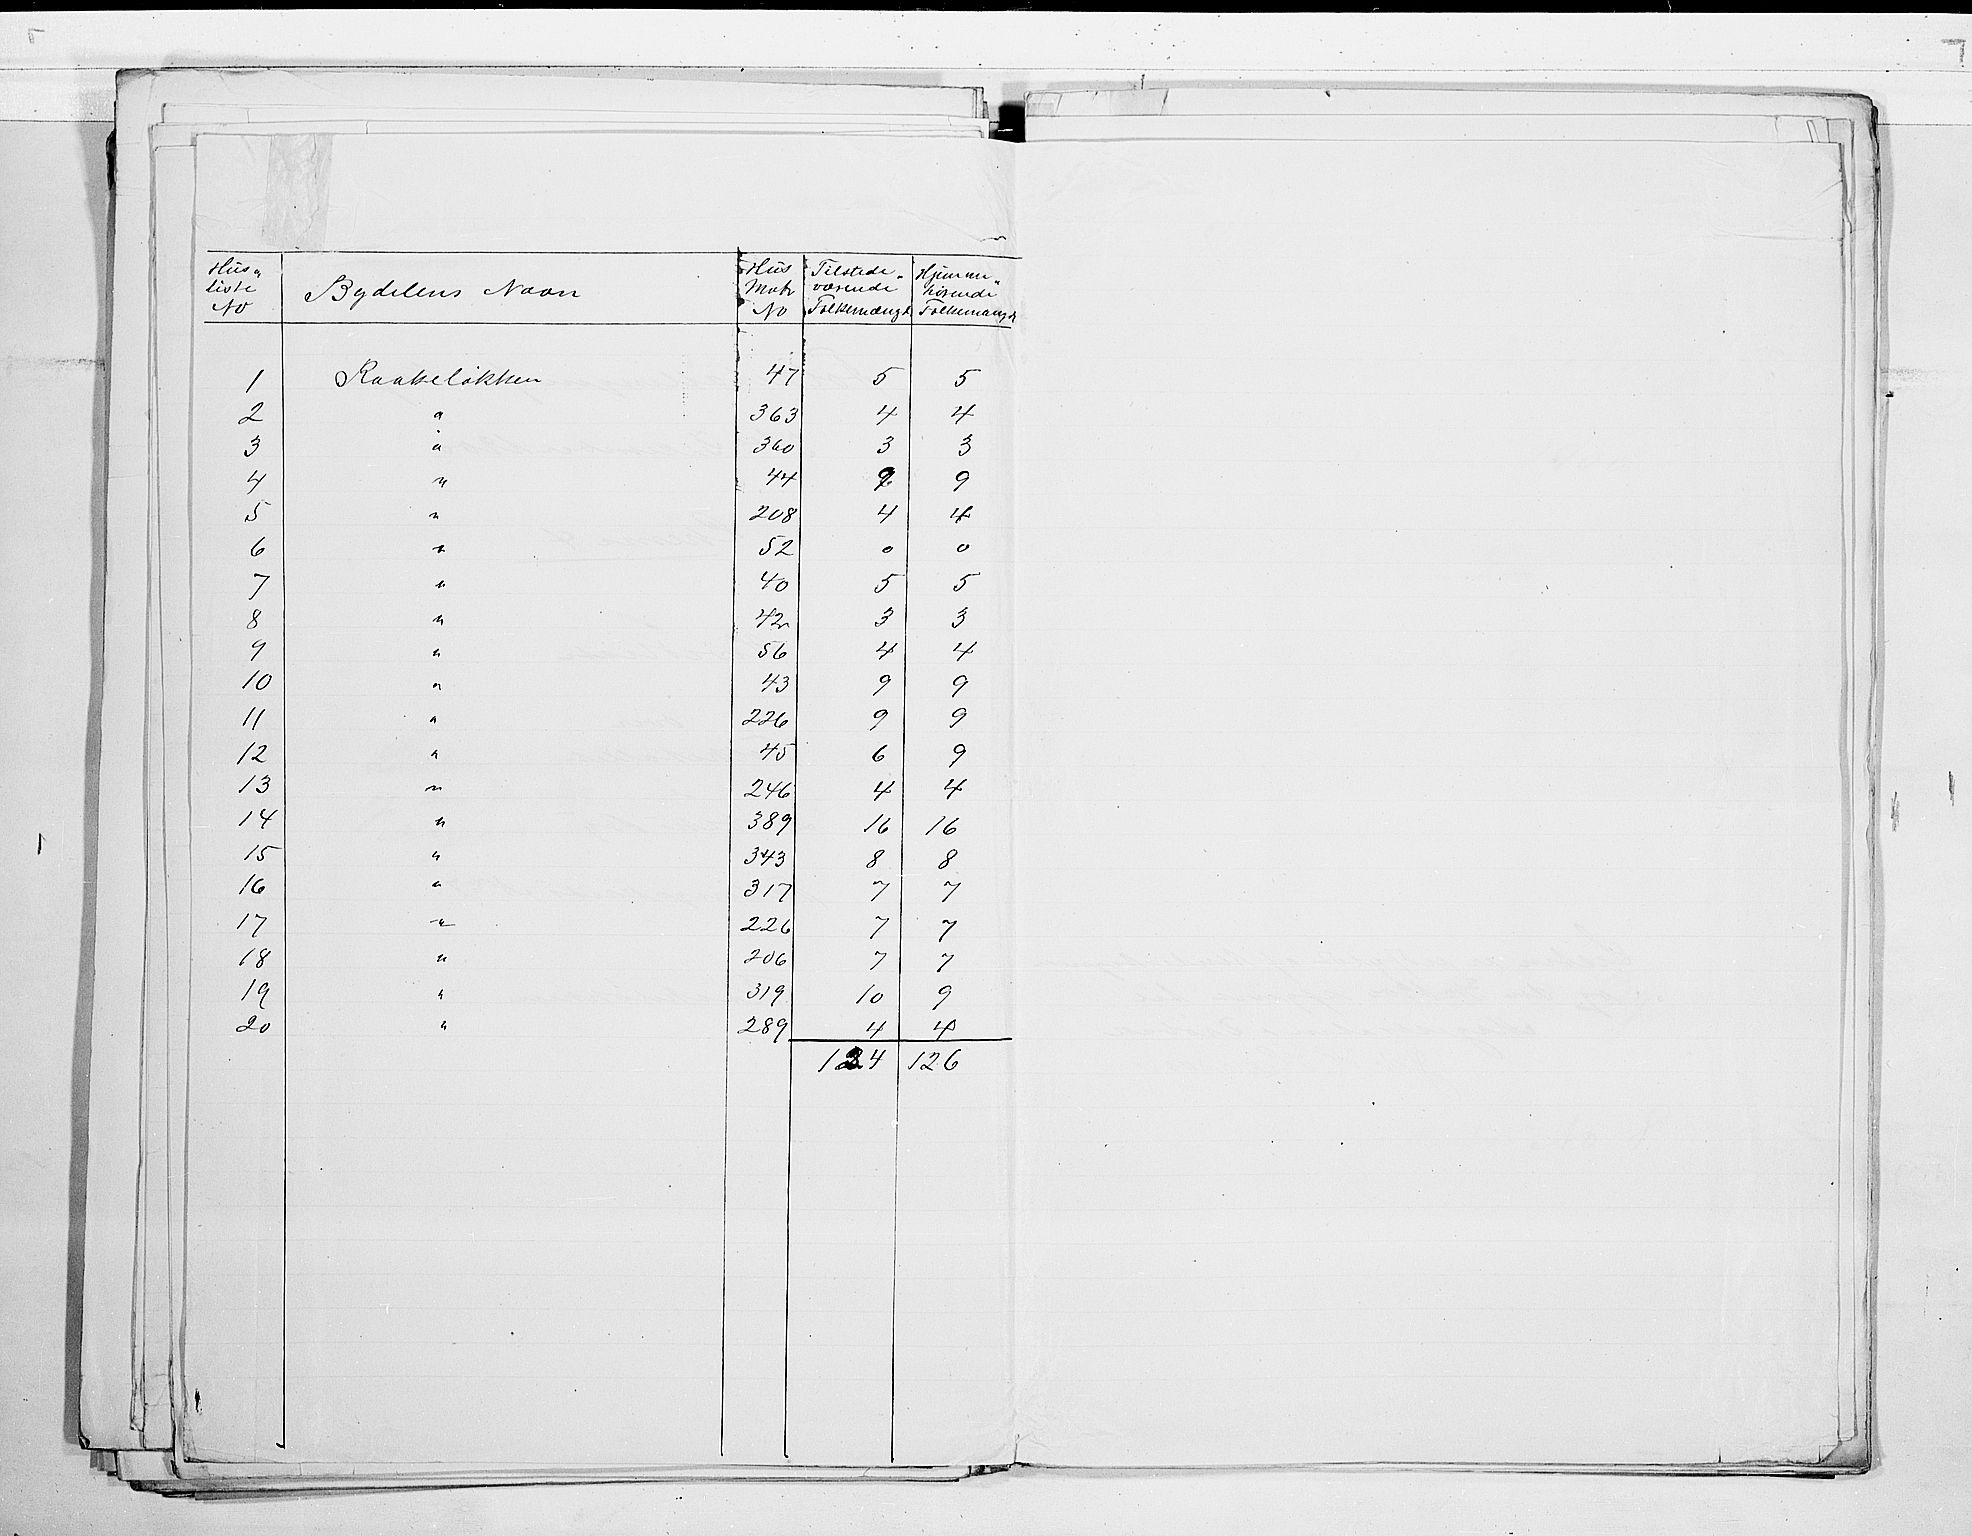 Hus„ liste No | Bydelens Navn | Hus Matr No | Tilstede„ værende Folkemængde | Hjemme„ hørende Folkemængde
1 Raakeløkken 47 5 5
2 " 363 4 4
3 " 360 3 3
4 " 44 9 9
5 " 208 4 4
6 " 52 0 0
7 " 40 5 5
8 " 42 3 3
9 " 56 4 4
10 " 43 9 9
11 " 226 9 9
12 " 45 6 9
13 " 246 4 4
14 " 389 16 16
15 " 343 8 8
16 " 317 7 7
17 " 226 7 7
18 " 206 7 7
19 " 319 10 9
20 " 289 4 4
124 126